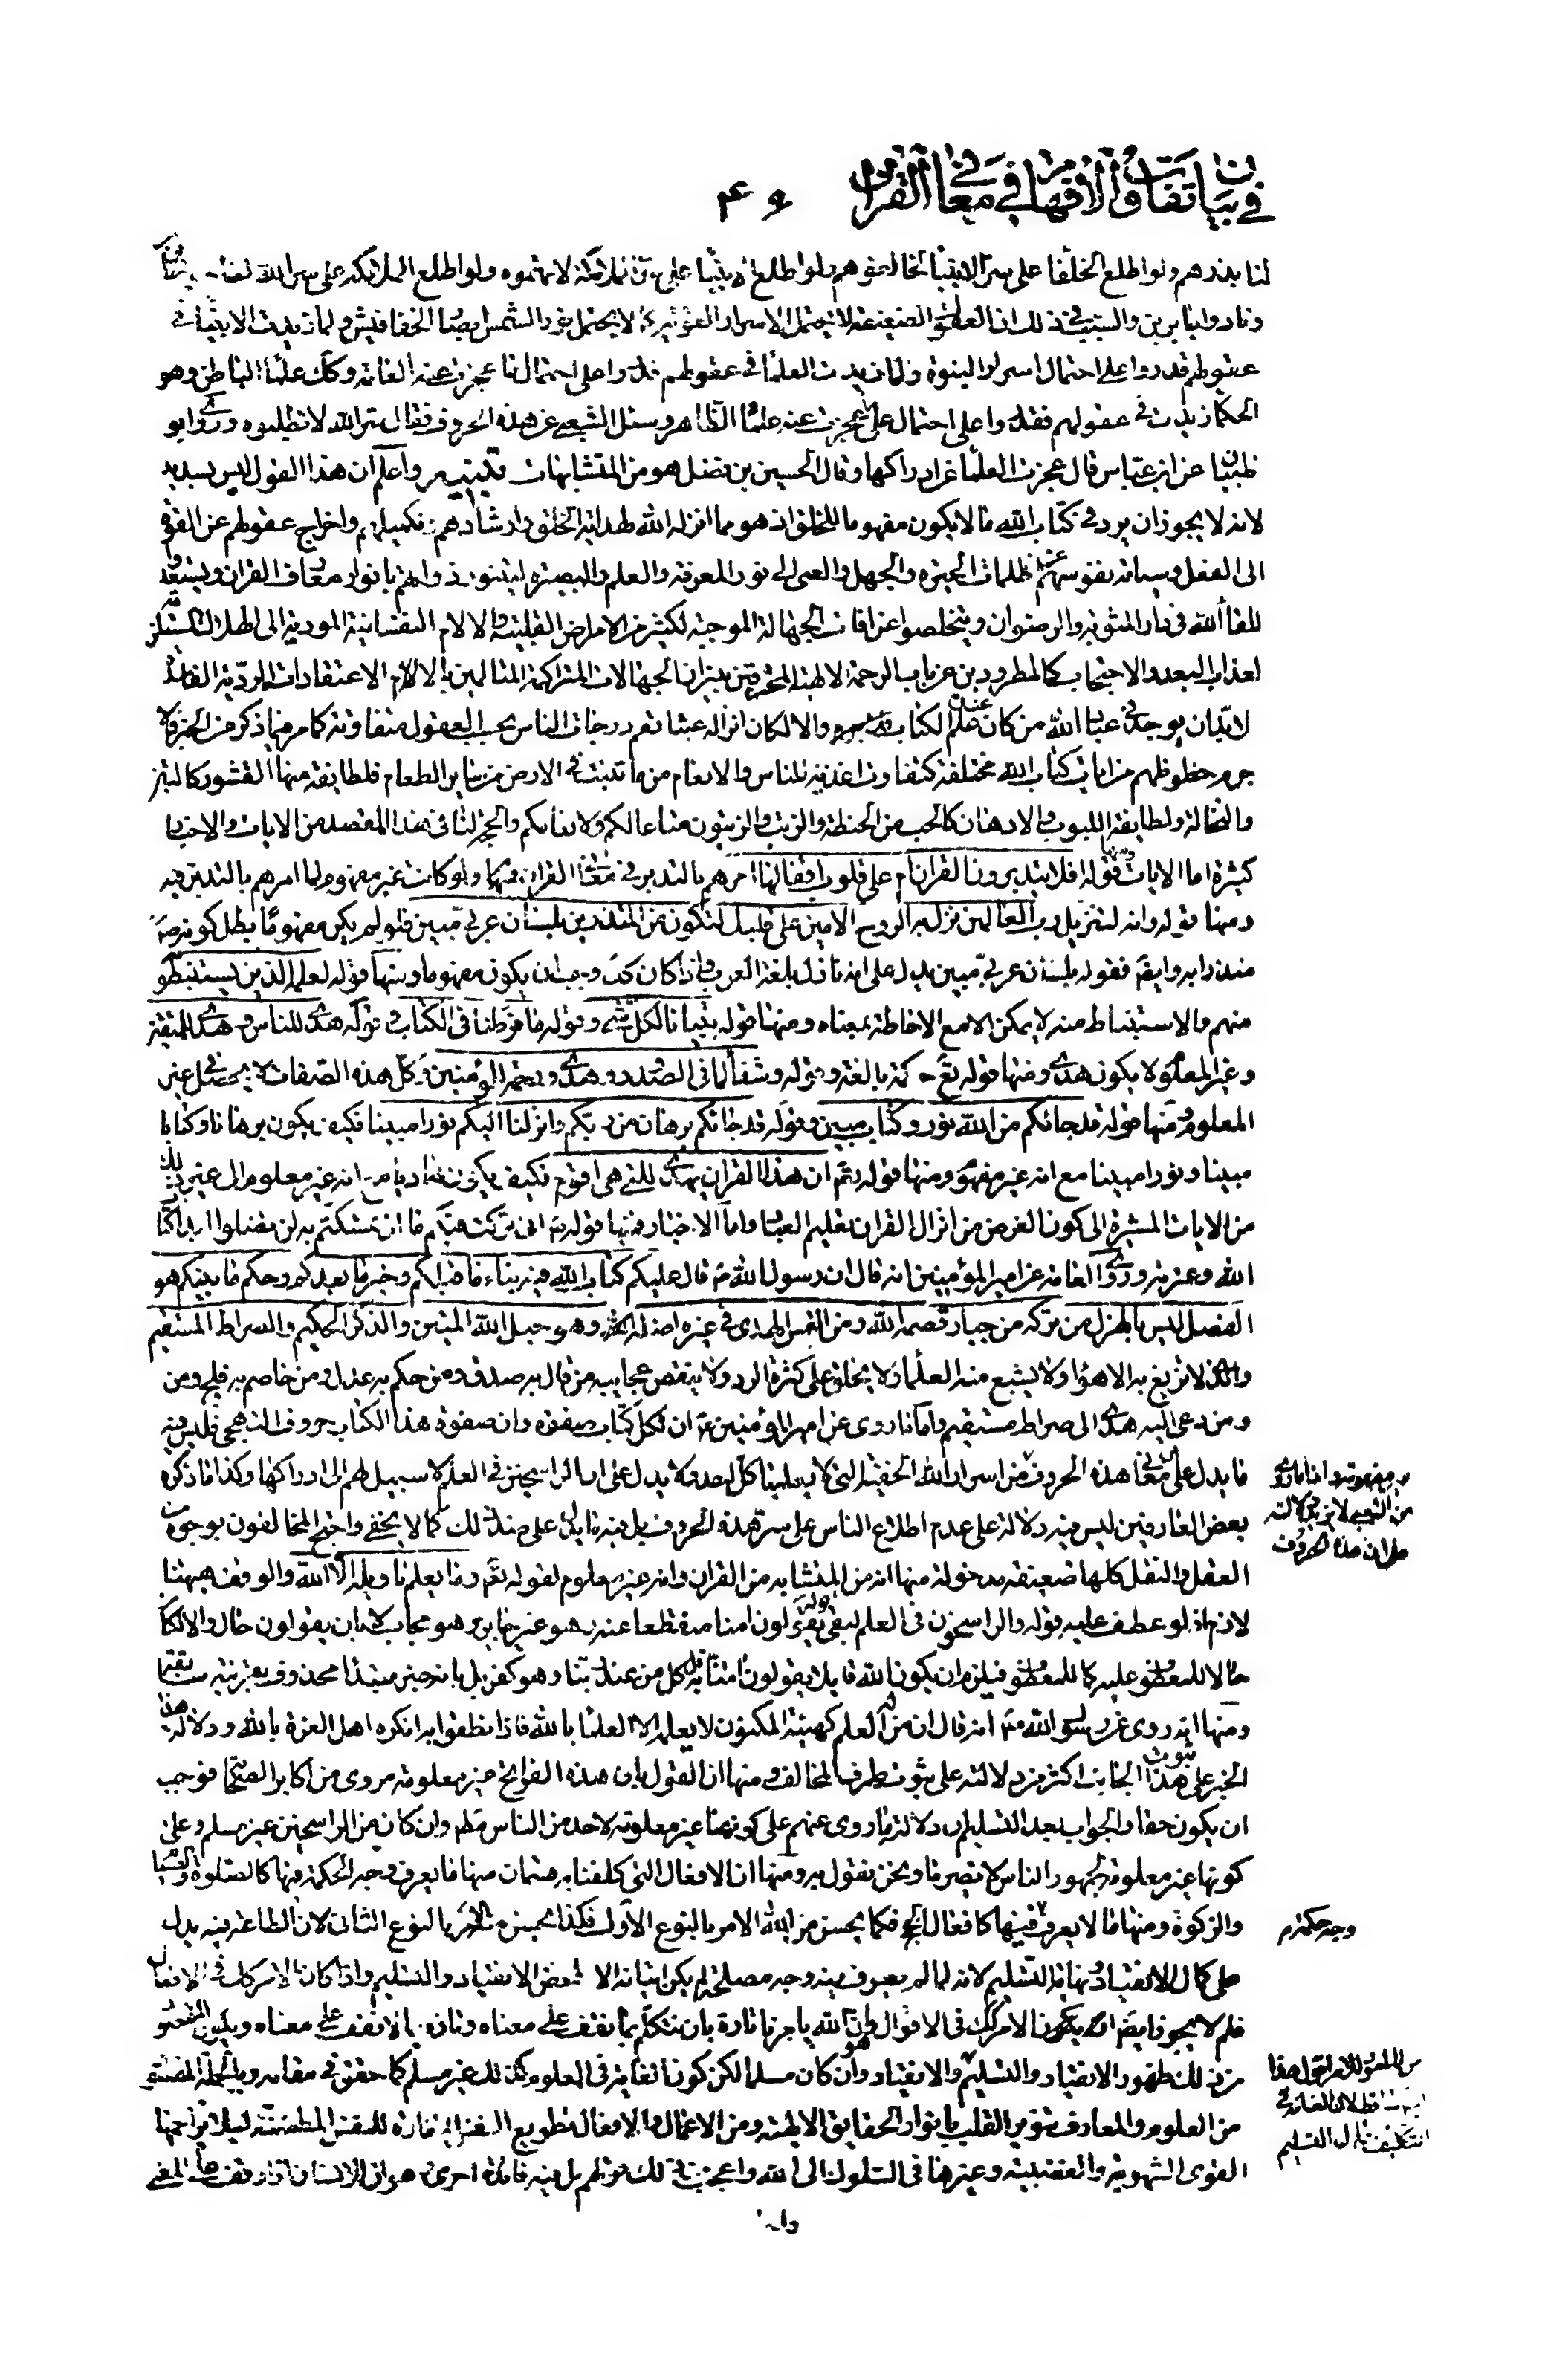 في بيان تفاوت الافهام في معاني القران
لنا بذرهم ولو اطلع الخلفا على سر الانبيا لخالفوهم ولو اطلع الانبيا على سر الملائكة لاتهموه ولو اطلع الملائكه على سر الله
والسبب في ذلك ان العقول الضعيفه لا تحتمل الاسرار القويه كما لا يحتمل نور الشمس ابصار الخفافيش ولما زيدت الانبيا في
عقولهم قدروا على احتمال اسرار النبوة ولما زيدت العلما في عقولهم قدروا على احتمال ما عجزت عنه العامه وكك علما الباطن وهو
الحكما زيدت في عقولهم فقدروا على احتمال ما عجزت عنه علما الظاهر وسئل الشعبي عن هذه الحروف فقال سر الله لا تطلبوه وروى ابو
ظبيان عن ابن عباس قال عجزت العلما عن ادراكها وقال الحسين بن فضل هو من المتشابهات تنبيه واعلم ان هذا القول ليس بسديد
لانه لا يجوز ان يرد في كتاب الله ما لا يكون مفهوما للخلق اذ هو مما انزله الله لهداية الخلق وارشادهم وتكميلهم واخراج عقولهم عن القوة
الى العقل وسياته نفوسهم عن ظلمات الحيرة والجهل والعمى الى نور المعرفة والعلم والبصيرة ليتنور ذواتهم بانوار معارف القران ويستعدوا
للقاء الله في دار المثوبة والرضوان ويتخلصوا عن افات الجهالة الموجبة لكثير من الامراض القلبية والالام النفسانية المودية الى الهلاك المستلزم
لعذاب البعد والاحتجاب كالمطرودين عن باب الرحمة الالهية المحترقين بنيران الجهالات المتراكمة المتالمين بالام الاعتقادات الردية الفاسدة
لابد ان يوجد في عباد الله من كان عنده علم الكتاب والا لكان انزاله عبثا نعم درجات الناس بحسب العقول متفاوتة كما مر فيما ذكر من الخبر فلا
جرم حظوظهم من ايات كتاب الله مختلفة كتفاوت اغذية للناس والانعام من ما تنبت في الارض من ساير الطعام فلطايفة منها القشور كالتبن
والنخالة ولطايفة اللبوب والادهان كالحب من الحنطة والزيت والزيتون متاعا لكم ولانعامكم والحجة لنا في هذا المقصد من الايات والاخبار
كثيرة اما الايات فمنها قوله افلا يتدبرون القران ام على قلوب اقفالها امرهم بالتدبر في معنى القران ولو كانت غير مفهوم لما امرهم بالتدبر فيه
ومنها قوله وانه لتنزيل رب العالمين نزل به الروح الامين على قلبك لتكون من المنذرين بلسان عربي مبين فلو لم يكن مفهوما بطل كونه ص
منذرا به وايضا فقوله بلسان عربي مبين يدل على انه نازل بلغة العرب واذا كان كك وجب ان يكون مفهوما ومنها قوله لعلمه الذين يستنبطونه
منهم والاستنباط منه لا يمكن الا مع الاحاطة بمعناه ومنها قوله تبيانا لكل شئ وقوله ما فرطنا في الكتاب وقوله هدى للناس وهدى للمتقين
وغير المعلوم لا يكون هدى ومنها قوله تع حكمة بالغة وقوله وشفاء لما في الصدور وهدى ورحمة للمؤمنين وكل هذه الصفات لا يحصل عن غير
المعلوم ومنها قوله قد جائكم من الله نور وكتاب مبين وقوله قد جائكم برهان من ربكم وانزلنا اليكم نورا مبينا فكيف يكون برهانا وكتابا
مبينا ونورا مبينا مع انه غير مفهوم ومنها قوله تع ان هذا القران يهدى للتي هي اقوم فكيف يكون هاديا مع انه غير معلوم الى غير ذلك
من الايات المشيرة الى كون الغرض من انزال القران تعليم العباد واما الاخبار فمنها قوله ص اني تركت فيكم ما ان تمسكتم به لن تضلوا ابدا كتاب
الله وعترتي وروى العامة عن امير المؤمنين انه قال ان رسول الله ص قال عليكم كتاب الله فيه نباء ما قبلكم وخبر ما بعدكم وحكم ما بينكم هو
الفصل ليس بالهزل من تركه من جبار قصمه الله ومن التمس الهدى في غيره اضله الله وهو حبل الله المتين والذكر الحكيم والصراط المستقيم
والذي لا تزيغ به الاهواء ولا يشبع منه العلما ولا يخلق على كثرة الرد ولا ينقص عجايبه من قال به صدق ومن حكم به عدل ومن خاصم به فلج ومن
ومن دعى اليه هدى الى صراط مستقيم واما ما روى عن امير المؤمنين ع ان لكل كتاب صفوة وان صفوة هذا الكتاب حروف التهجي فليس فيه
ما يدل على ان معاني هذه الحروف من اسرار الله الخفية التي لا يعلمها كل احد فلا يدل على ان الراسخين في العلم لا سبيل لهم الى ادراكها وكذا ما ذكره
بعض العارفين ليس فيه دلالة على عدم اطلاع الناس على سر هذه الحروف بل فيه ايماء على ضد ذلك كما لا يخفى واحتج المخالفون بوجوه من
العقل والنقل كلها ضعيفة مدخولة منها انه من المتشابه من القران وانه غير معلوم لقوله تع وما يعلم تاويله الا الله والوقف هيهنا
لازم اذ لو عطف عليه قوله والراسخون في العلم لبقى يقولون امنا به منقطعا عنه وهو غير جايز وهو مجاب لا بان يقولون حال والا لكان
حالا للمعطوف عليه كما للمعطوف فيلزم ان يكون الله قايلا يقولون امنا به كل من عند ربنا وهو كفر بل بانه خبر مبتدا محذوف بقرينة سابقتها
ومنها انه روى عن رسول الله ص انه قال ان من العلم كهيئة المكنون لا يعلمه الا العلماء بالله فاذا نطقوا به انكره اهل الغرة بالله ودلالة هذا
الخبر على ثبوت هذا الجانب اكثر من دلالته على ثبوت طرف المخالف ومنها ان القول بان هذه الفواتح غير معلومة مروى من اكابر الصحابة فوجب
ان يكون حقا والجواب بعد التسليم ان دلالة ما روى عنهم على كونها غير معلومة لاحد من الناس مطلقا وان كان من الراسخين غير مسلم وعلى
كونها غير معلومة لجمهور الناس لا يضرنا ونحن نقول به ومنها ان الافعال التي كلفنا بها قسمان منها ما يعرف وجه الحكمة فيها كالصلوة والصيام
والزكوة ومنها ما لا يعرف فيها كافعال الحج فكما يحسن من الله الامر بالنوع الاول فكذا يحسن منه الامر بالنوع الثاني لان الطاعة فيه يدل
على كمال الانقياد ونهاية التسليم لانه لما لم يعرف فيه وجه مصلحة لم يكن اتيانه الا لمحض الانقياد والتسليم واذا كان الامر كك في الافعال
فلم لا يجوز ايضا ان يكون الامر كك في الاقوال وهو ان الله يامرنا تارة بان نتكلم بما نقف على معناه وتارة بما لا نقف على معناه ويكون المقصود
من ذلك ظهور الانقياد والتسليم والانقياد وان كان مسلما لكن كونه الغاية في المعلوم كك غير مسلم كما حقق في مقامه وبالجملة المقصود
من العلوم والمعارف تنوير القلب بانوار الحقايق الالهية ومن الاعمال والافعال تطويع النفس الامارة للنفس المطمئنة ليلا تزاحمها
القوى الشهوية والغضبية وغيرها في السلوك الى الله واعجب من ذلك قولهم بل فيه فائدة اخرى هو ان الانسان اذا وقف على المعنى
من الشعبي لانه لا دلالة
على ان هذه الحروف
وجه حكمته